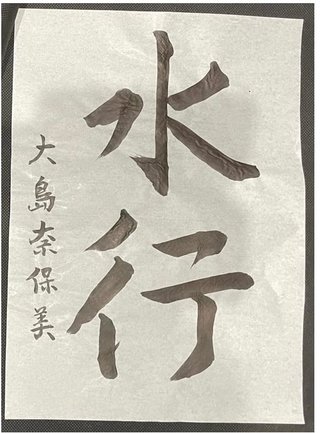 水行
大島奈保美